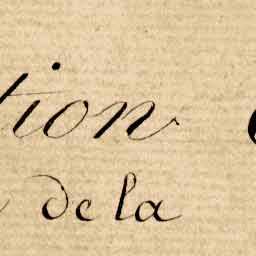 tion
de la